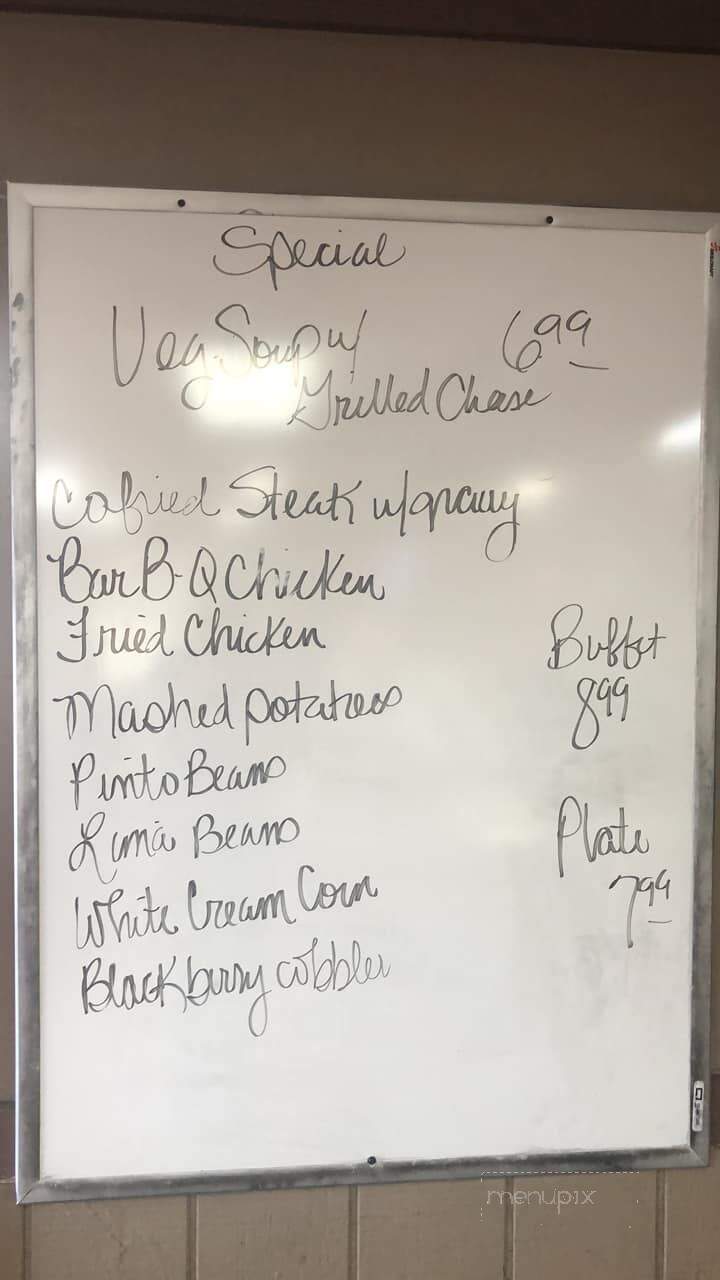 Special
Veg. Soup w/ 6.99
Grilled Chese
Cofried Steak w/gravy
Bar B-Q Chicken
Fried Chicken
Buffet
Mashed potatoes
8.99
Pinto Beans
Lima Beans
Plate
White Cream Corn
7.99
Blackberry cobbler
menupix